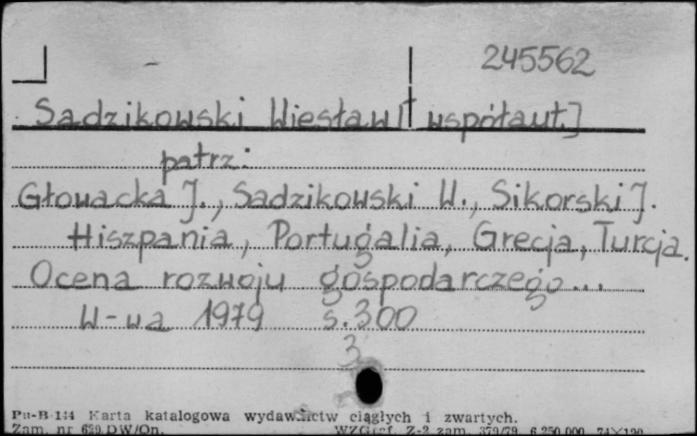 245562
Sadzikowski Wiesław [współaut.]
patrz:
Głowacka J., Sadzikowski W., Sikorski J.
Hiszpania, Portugalia, Grecja, Turcja.
Ocena rozwoju gospodarczego...
W-wa 1979 s.300
3
Pu-B 144 Karta katalogowa wydawnictw ciągłych i zwartych.
Zam. nr 659 DW/On. WZGraf. Z-2 zam. 379/79. 6.250.000. 74×120